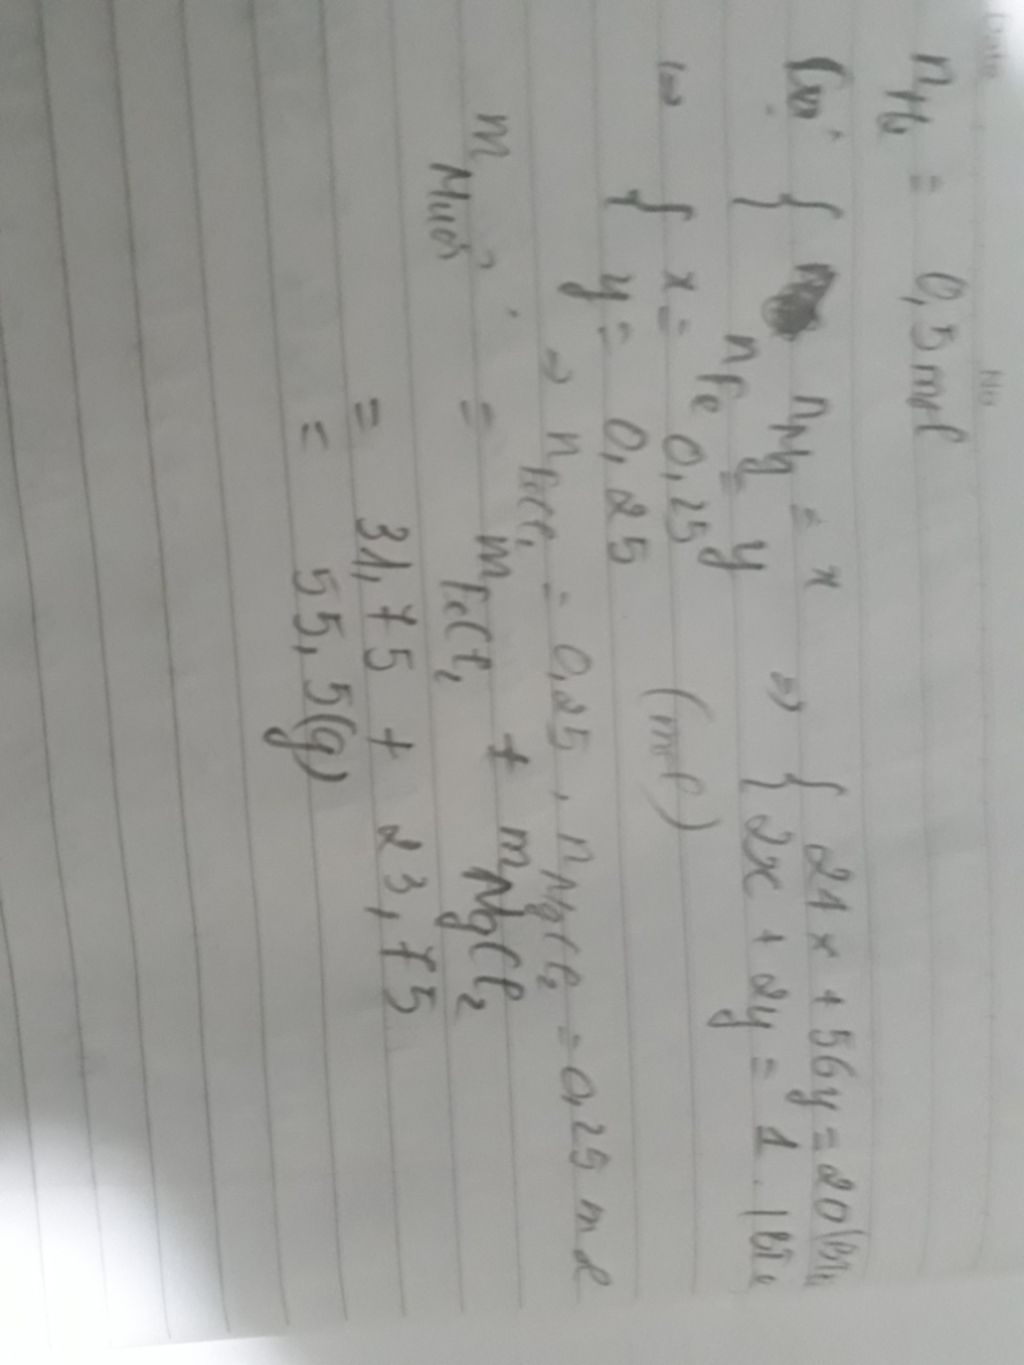 Date No
n H₂ = 0,5 mol
Gọi { n Mg = x ⇒ { 24x + 56y = 20
n Fe = y { 2x + 2y = 1
⇔ { x = 0,25
{ y = 0,25 (mol)
⇒ n FeCl₂ = 0,25, n MgCl₂ = 0,25 mol
m Muối = m FeCl₂ + m MgCl₂
= 31,75 + 23,75
= 55,5(g)